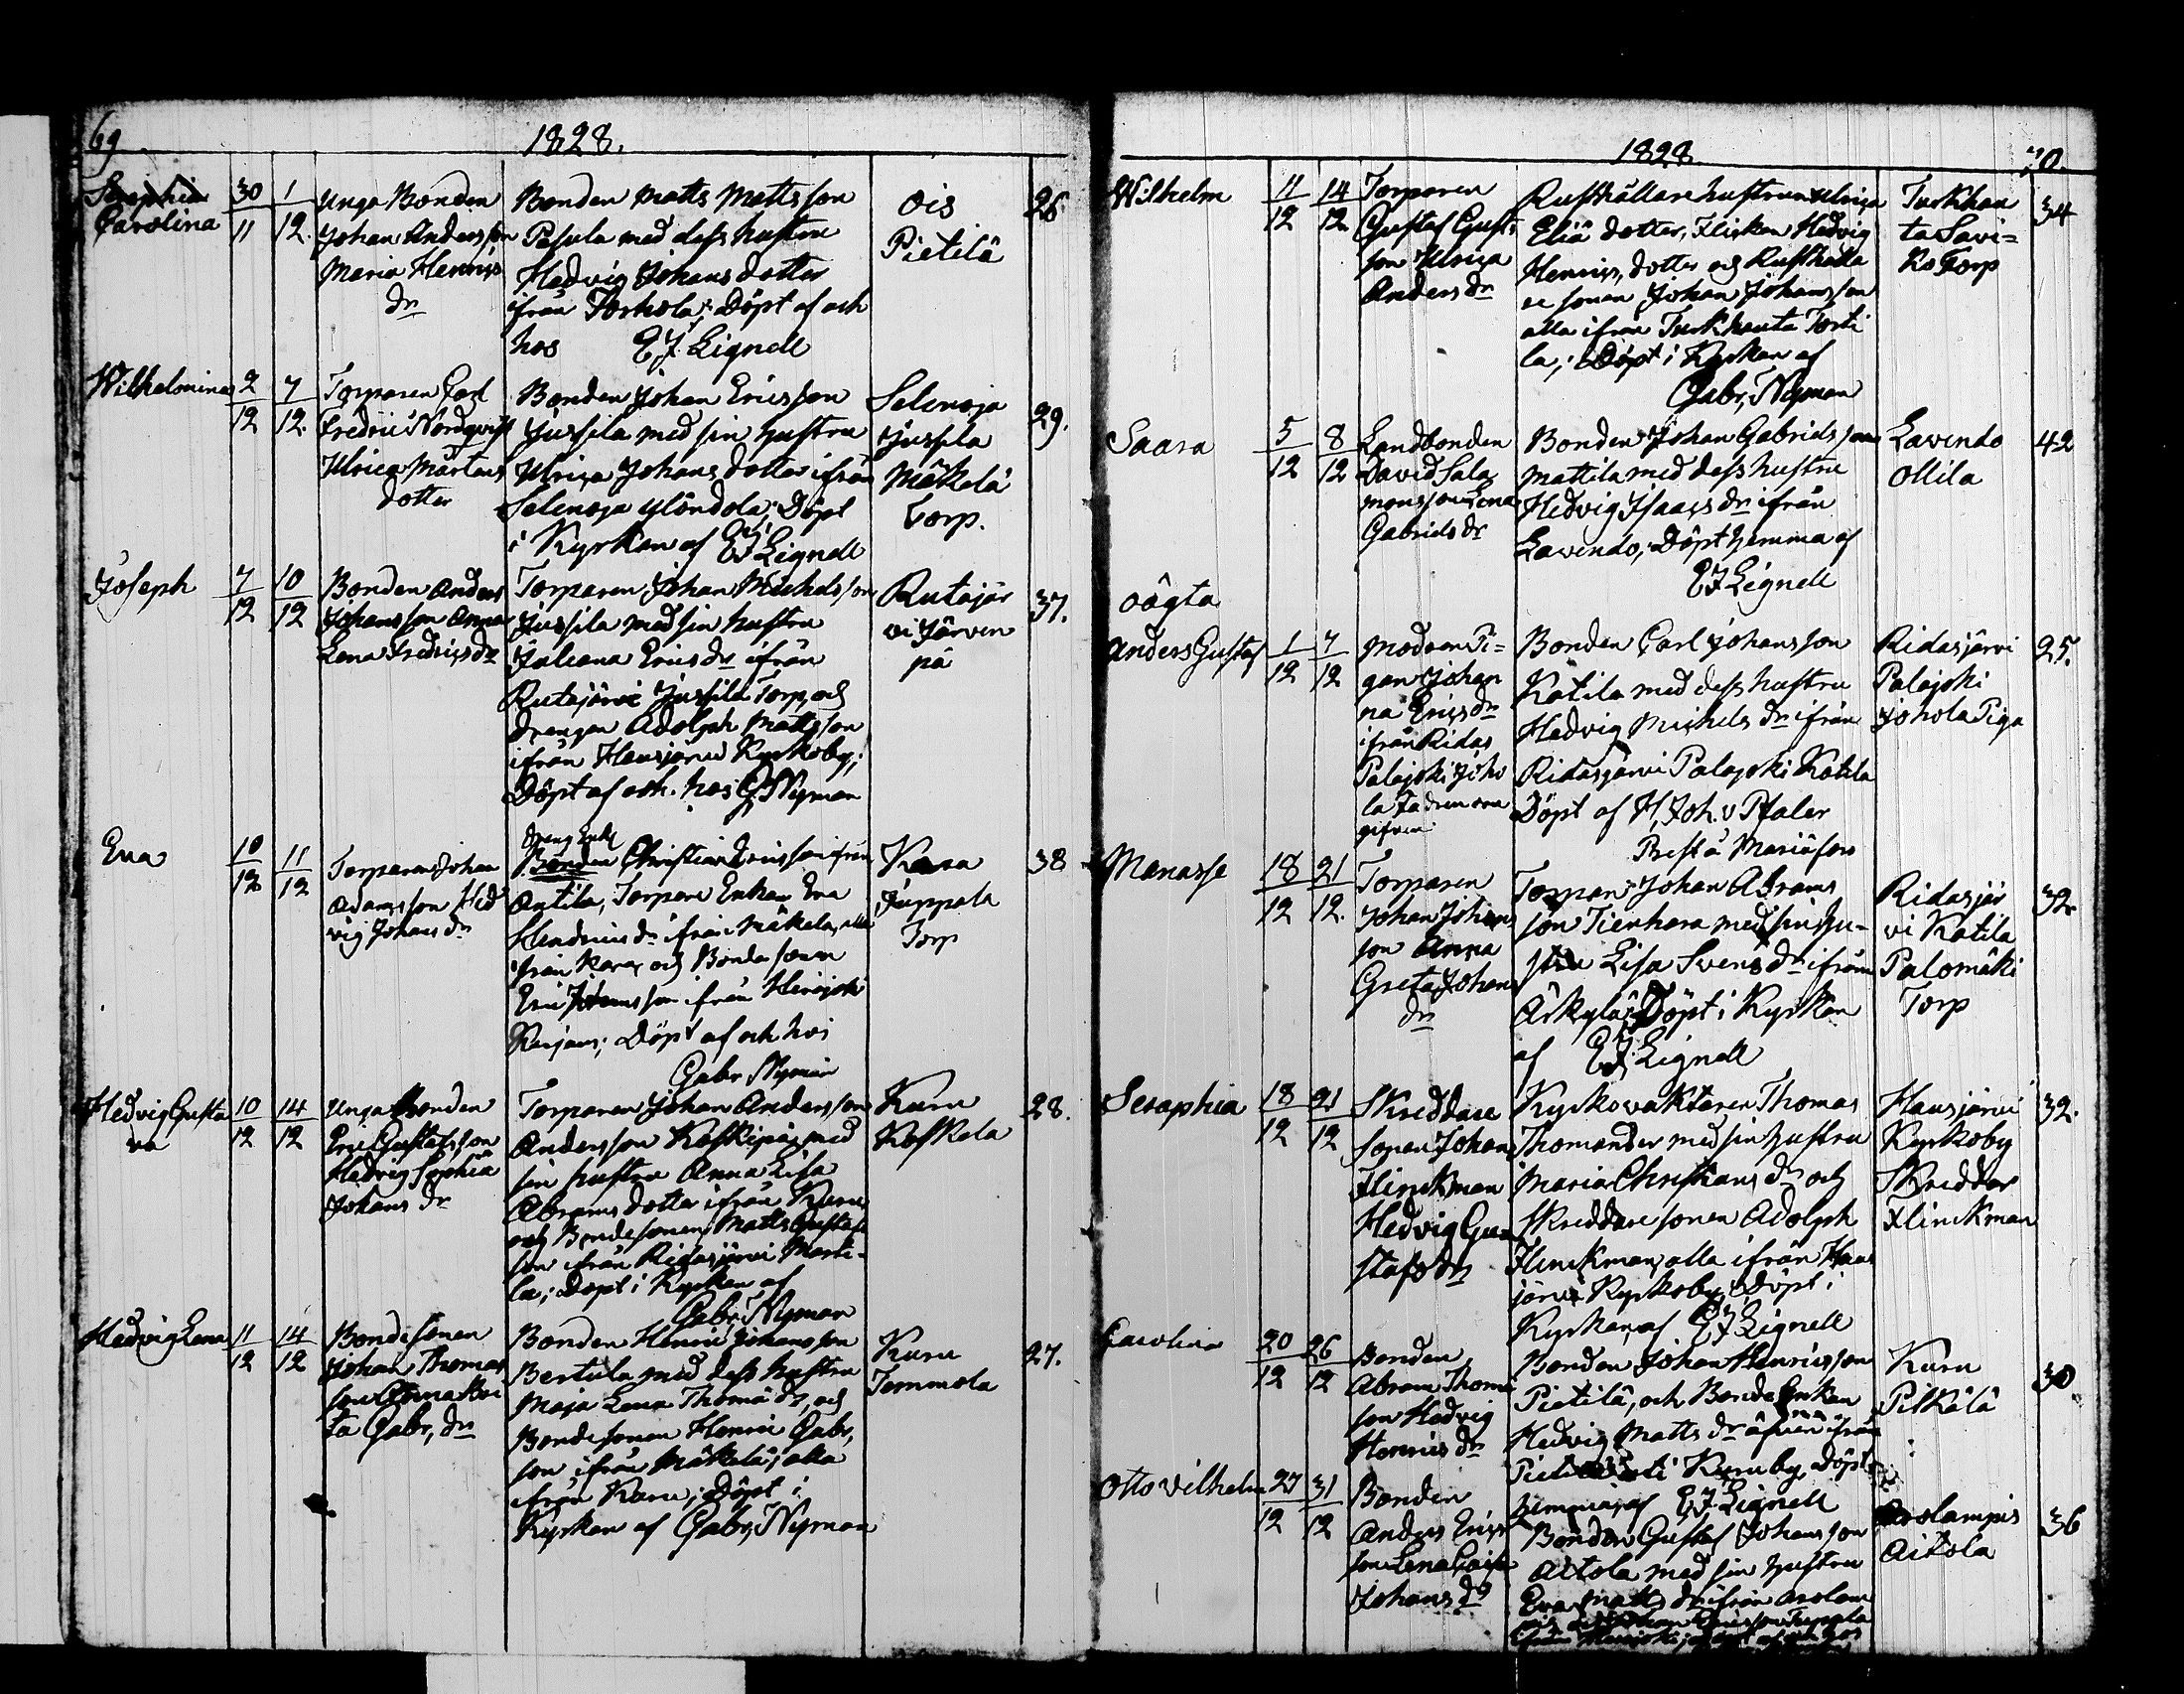 69
1828.
Seraphia
Carolina
30 1
11 12.
Unga Bonden
Johan Andersson
Maria Henrics
dr
Bonden Matts Mattsson
Pasula med dess hustru
Hedvig Johans dotter
ifrån Torhola; Döpt af och
hos EJ Lignell
Ois
Pietilä
26
Wilhelmina
2 7
12 12.
Torparen Carl
Fredric Nordqvist
Ulrica Mårtens
dotter
Bonden Johan Ericsson
Jussila med sin hustru
Ulrica Johans dotter ifrån
Selenoja Ylöndola; Döpt
i Kyrkan af EJ Lignell
Selenoja
Jussila
Mäkelä
Torp.
29.
Joseph
7 10
12 12
Bonden Anders
Johansson Anna
Lena Fredrics dr
Torparen Johan Michelsson
Jussila med sin hustru
Juliana Erics dr ifrån
Rutajärvi Jussila Torp, och
drengen Adolph Mattsson
ifrån Hausjärvi Kyrkoby;
Döpt af och hos G Nyman
Rutajär
vi Järven
pä
37.
Eva
10 11
12 12
Torparen Johan
Adamsson Hed
vig Johans dr
Dreng Enkl
Bonden Christian Ericsson ifrån
Antila, Torpare Enkan Eva
Hendrics dr ifrån Mäkelä, alla
ifrån Kara och Bonde sonen
Eric Johansson ifrån Hirvijoki
; Döpt af och hos
Gabr Nyman
Kara
Juppala
Torp
38
Hedvig Gusta
va
10 14
12 12
Unga Bonden
Eric Gustafsson
Hedvig Sophia
Johans dr
Torparen Johan Andersson
Andersson Koskipää med
sin hustru Anna Lisa
Abrams dotter ifrån Kuru
och Bondesonen Matts Gustafs
son ifrån Ridasjärvi Marti-
la; Döpt i Kyrkan af
Gabr, Nyman
Kuru
Koskela
28.
Hedvig Lena
11 14
12 12
Bondesonen
Johan Thomas
son Anna Bri
ta Gabr, dr
Bonden Henric Johansson
Bertula med dess hustru
Maja Lena Thomä dr, och
Bondesonen Henric Gabr,
son ifrån Mäkelä; alla
ifrån Karu; Döpt i
Kyrkan af Gabr, Nyman
Kuru
Temmola
27.
1828
70.
Wilhelm
11 14
12 12
Torparen
Gustaf Gust
son Ulrica
Anders dr
Rusthållare hustrun Ulrica
Eliä dotter, Flickan Hedvig
Henrics dotter och Rusthålla
re sonen Johan Johansson
alla ifrån Turkhauta Torti
la; Döpt i Kyrkan af
Gabr, Nyman
Turkhau
ta Savi=
ko Torp
34
Saara
5 8
12 12
Landbonden
David Sala
monsson Lena
Gabriels dr
Bonden Johan Gabrielsson
Mattila med dess hustru
Hedvig Isaacs dr ifrån
Lavendo; Döpt hemma af
EJ Lignell
Lavendo
Ollila
42
Oägta
Anders Gustaf
1 7
12 12
Modren Pi=
gan Johan
na Erics dr
ifrån Ridas
Palojoki Joho
la Fadren oan
gifven
Bonden Carl Johansson
Katila med dess hustru
Hedvig Michels dr ifrån
Ridasjärvi Palojoki Katila
Döpt af H, Joh. v Pfaler
Prest å Mariäfors
Ridasjärvi
Palojoki
Johola Piga
25.
Manasse
18 21
12 12.
Torparen
Johan Johans
son Anna
Greta Johans
dr
Torparen Johan Abrams
son Tienhara med sin hu-
stru Lisa Svens dr ifrån
Äikylä; Döpt i Kyrkan
af EJ Lignell
Ridasjär
vi Katila
Palomäki
Torp
32.
Seraphia
18 21
12 12
Skreddare
sonen Johan
Flinckman
Hedvig Gu
stafs dr
Kyrkovaktaren Thomas
Thomander med sin hustru
Maria Christians dr och
Skreddare sonen Adolph
Flinckman, alla ifrån Haus
järvi Kyrkoby; Döpt i
Kyrkan af EJ Lignell
Hausjärvi
Kyrkoby
Skreddar
Flinckman
32.
Carolina
20 26
12 12
Bonden
Abram Thoms
son Hedvig
Henrics dr
Bonden Johan Henricsson
Pietilä, och Bonde Enkan
Hedvig Matts dr äfven ifrån
Kuruby, Döpt
hemma; af EJ Lignell
Kuru
Pitkälä
30
Otto Vilhelm
27 31
12 12
Bonden
Anders Erics
son Lena Caisa
Johans dr
Bonden Gustaf Johansson
Aitola med sin hustru
Eva Matts dr ifrån Arolam
Arolampis
Aitola
36